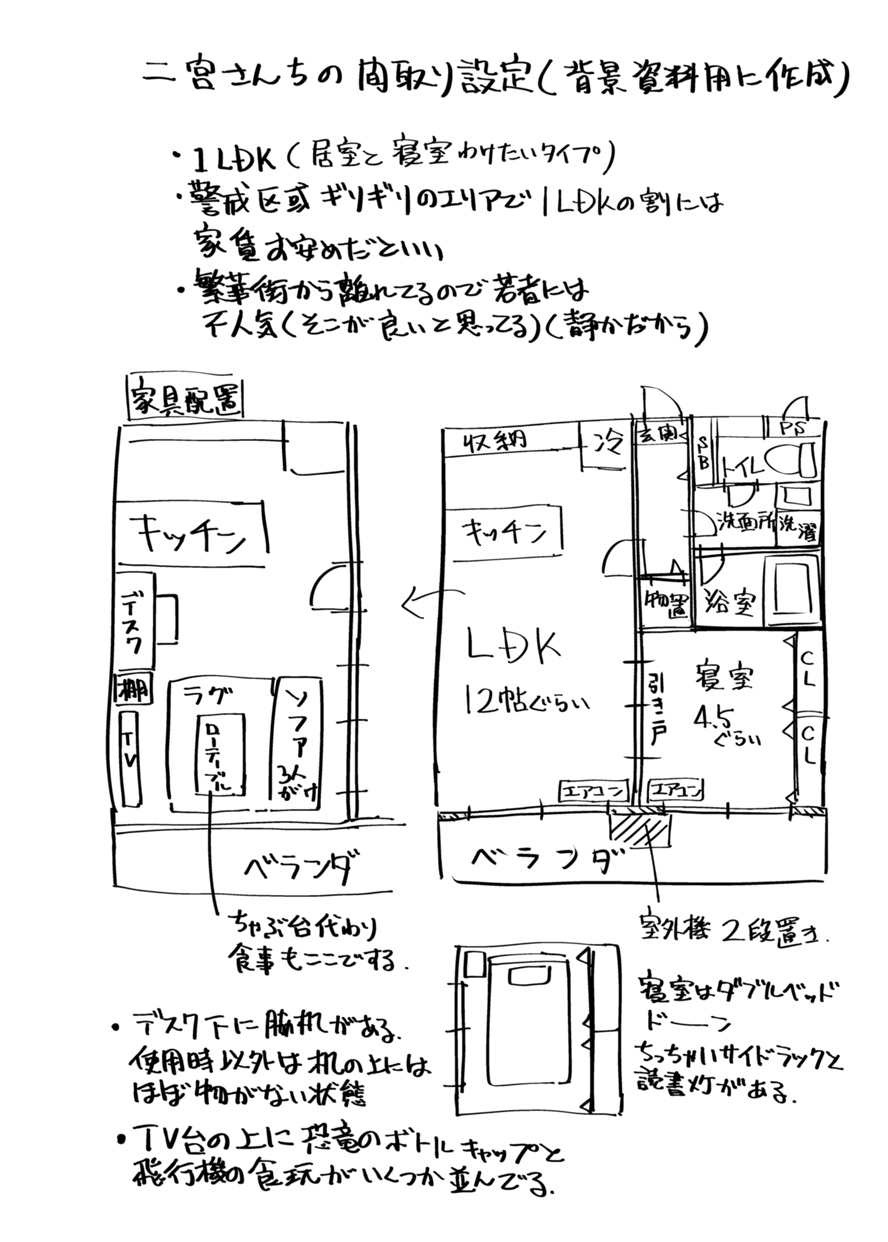 二宮さんちの間取り設定(背景資料用に作成)
・1LDK(居室と寝室わけたいタイプ)
・警戒区域ギリギリのエリアで1LDKの割には
家賃お安めだといい
・繁華街から離れてるので若者には
不人気(そこが良いと思ってる)(静かだから)
家具配置
キッチン
デスク
棚
TV
ラグ
ローテーブル
ソファ
3人がけ
ベランダ
ちゃぶ台代わり
食事もここでする.
収納
冷
玄関
SB
PS
トイレ
洗面所
洗濯
キッチン
物置
浴室
LDK
12帖ぐらい
引き戸
寝室
4.5
ぐらい
CL
CL
エアコン
エアコン
ベランダ
室外機2段置き.
寝室はダブルベッド
ドーン
ちっちゃいサイドラックと
読書灯がある.
・デスク下に脇机がある.
使用時以外は机の上には
ほぼ物がない状態
・TV台の上に恐竜のボトルキャップと
飛行機の食玩がいくつか並んでる.